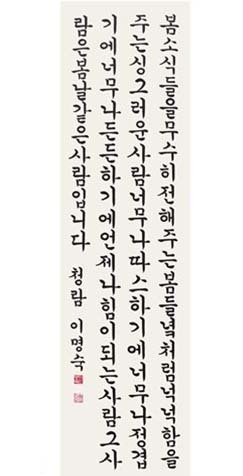 봄소식들을무수히전해주는봄들녘처럼넉넉함을
주는싱그러운사람너무나따스하기에너무나정겹
기에너무나든든하기에언제나힘이되는사람그사
람은봄날같은사람입니다 청람 이명숙